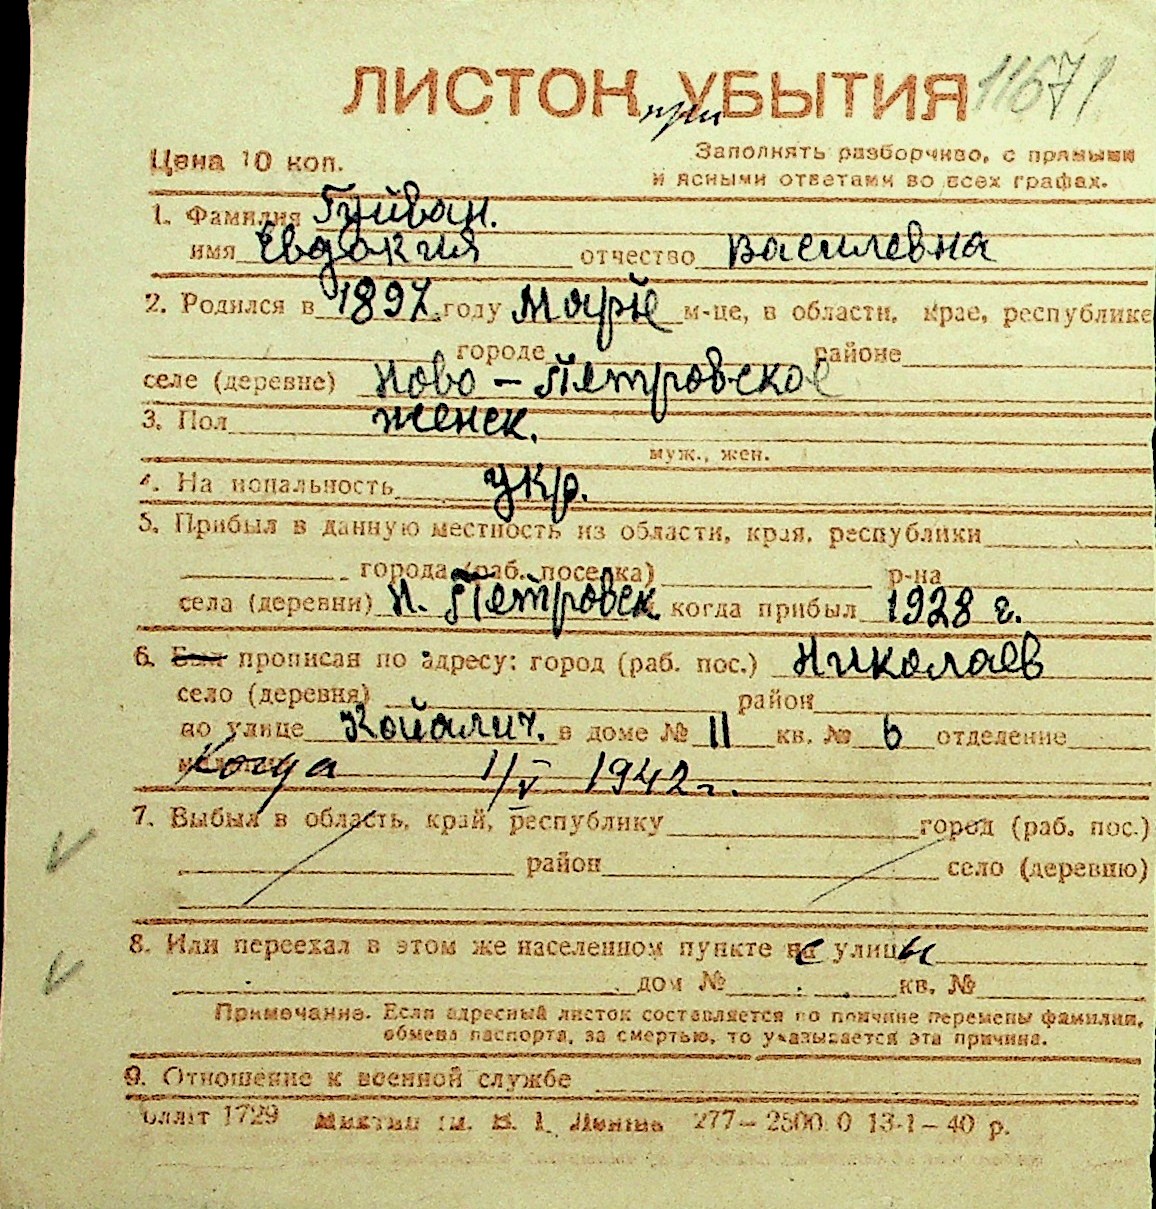 ЛИСТОК при УБЫТИЯ 11671
Цена 10 коп.
Заполнять разборчиво, с прямыми
и ясными ответами во всех графах.
1. Фамилия Гуйван.
имя Евдокия отчество Василевна
2. Родился в 1897 году Марте м-це, в области, крае, республике
городе районе
селе (деревне) Ново-Петровское
3. Пол женск.
муж., жен.
4. Национальность укр.
5. Прибыл в данную местность из области, края, республики
города (раб. поселка) р-на
села (деревни) Н. Петровск когда прибыл 1928 г.
6. Был прописан по адресу: город (раб. пос.) Николаев
село (деревня) район
по улице в доме № 11 кв. № 6 отделение
Когда 1/V 1942 г.
7. Выбыл в область, край, республику город (раб. пос.)
район село (деревню)
8. Или переехал в этом же населенном пункте с улицы
дом № кв. №
Примечание. Если адресный листок составляется по причине перемены фамилии,
обмена паспорта, за смертью, то указывается эта причина.
9. Отношение к военной службе
1729 им. В. І. Леніна 277—2500.0 13-1—40 р.